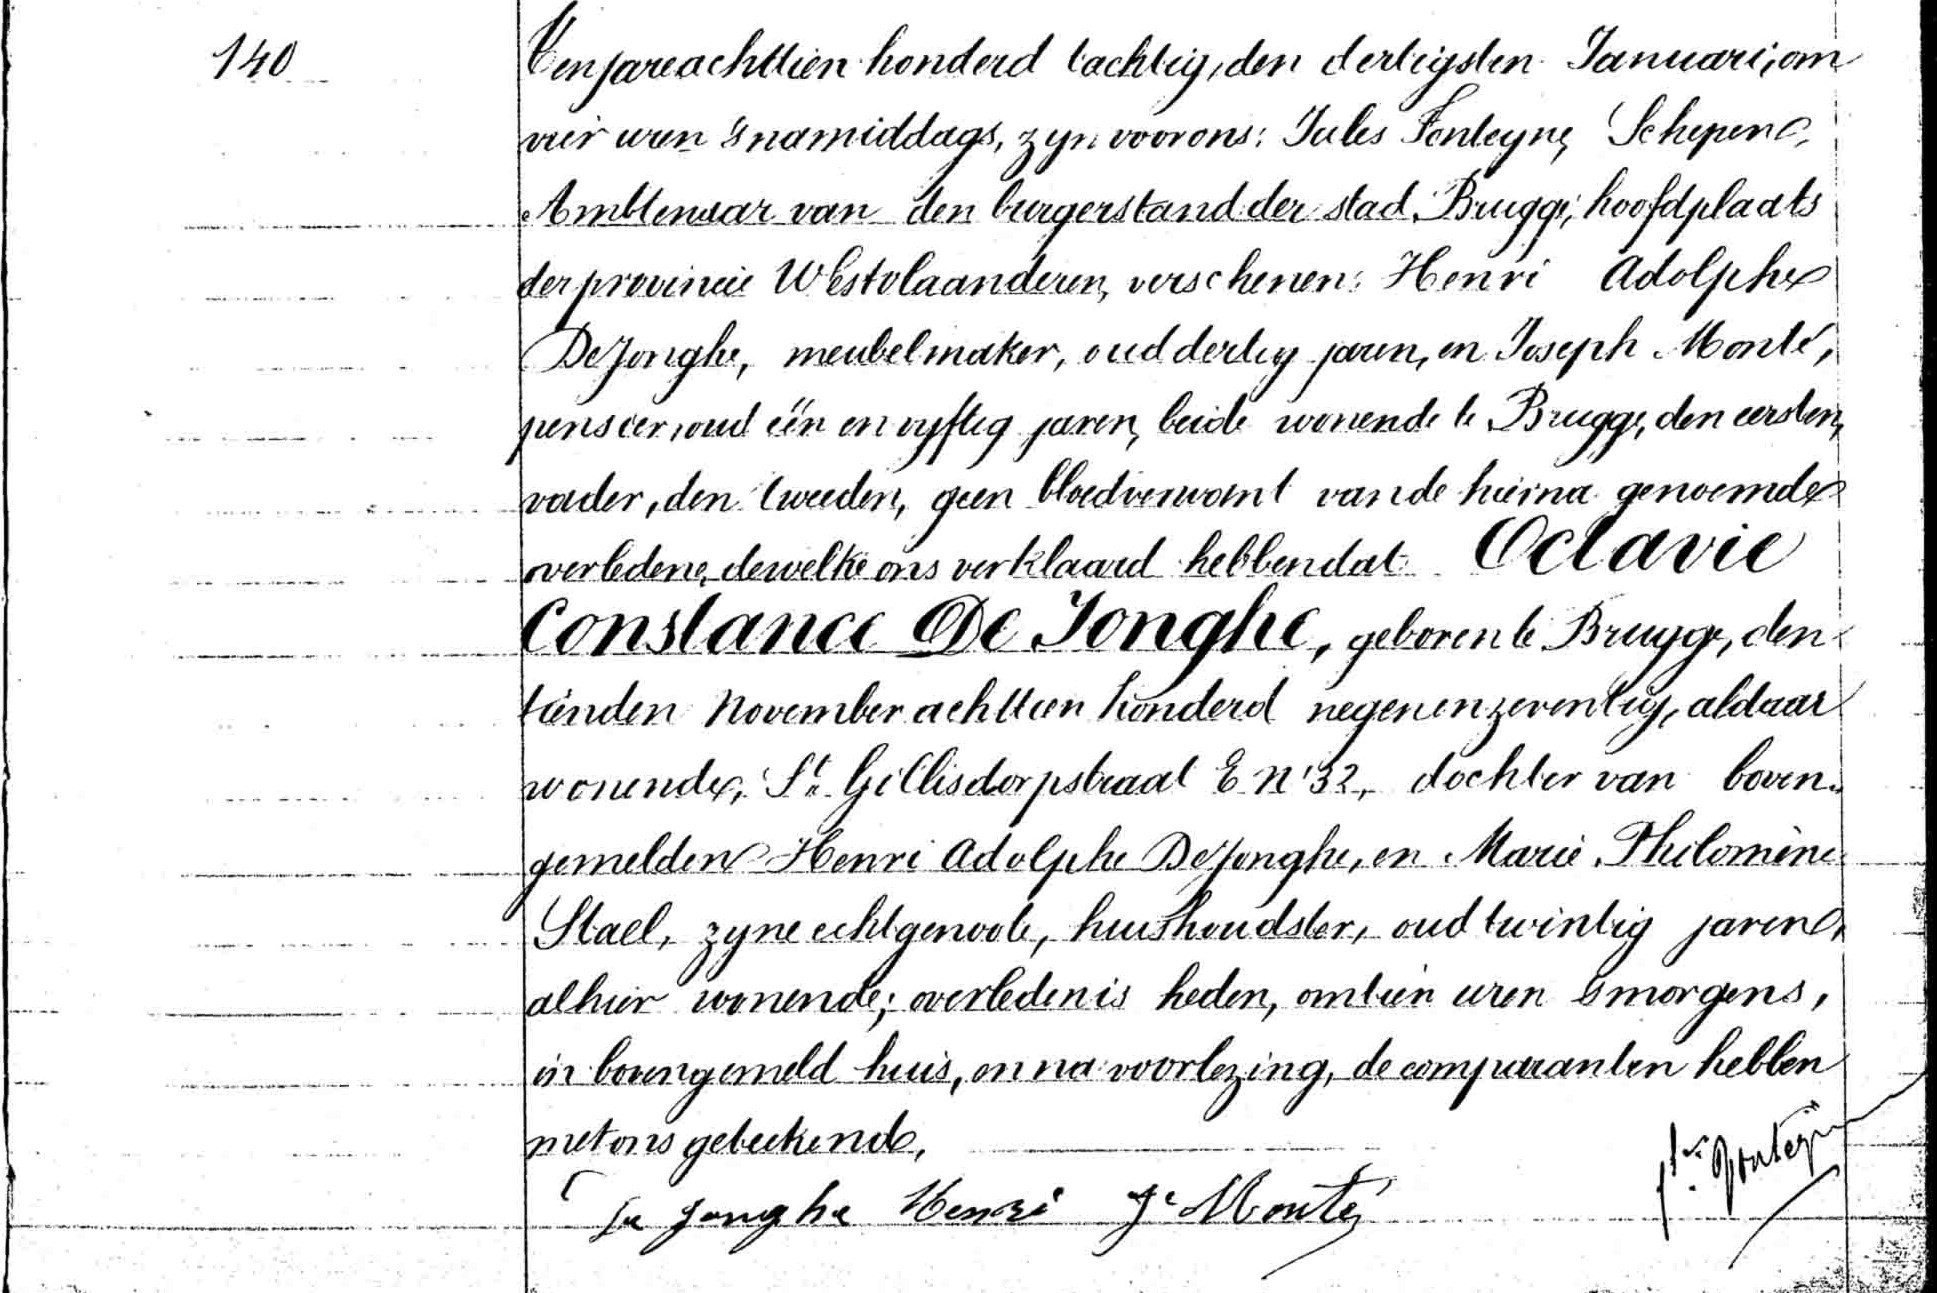 140
Ten jare achttien honderd tachtig, den dertigsten Januari, om
vier uren s'namiddags, zyn voor ons: Jules Fonteyne, Schepene,
Ambtenaar van den burgerstand der stad Brugge, hoofdplaats
der provincie Westvlaanderen, verschenen: Henri Adolphe
De Jonghe, meubelmaker, oud dertig jaren, en Joseph Monté,
oud één en vyftig jaren, beide wonende te Brugge, den eersten,
vader, den tweeden, geen bloedverwant van de hierna genoemde
overledene, dewelke ons verklaard hebben dat Octavie
Constance De Jonghe, geboren te Brugge, den
tienden November achttien honderd negen en zeventig, aldaar
wonende, St Gillisdorpstraat E N° 32, dochter van boven-
gemelden Henri Adolphe De Jonghe, en Marie Philomène
Stael, zyne echtgenoote, huishoudster, oud twintig jaren,
alhier wonende; overleden is heden, om tien uren s'morgens,
in bovengemeld huis, en na voorlezing, de comparanten hebben
met ons geteekend.
De Jonghe Henri Je Monté
Fonteyne